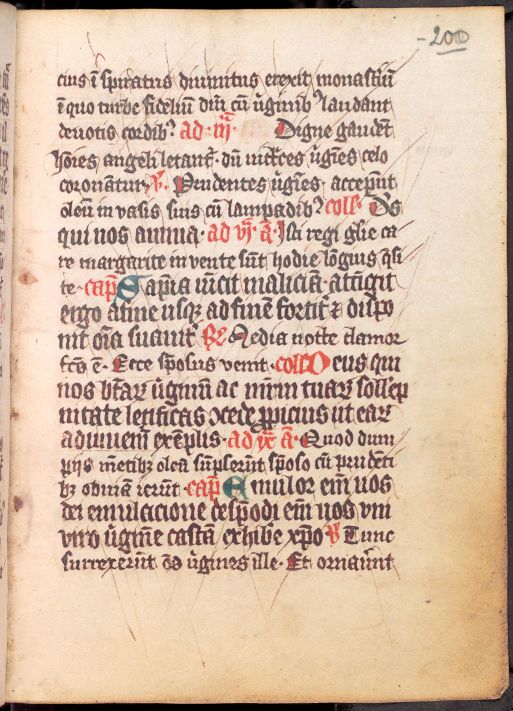 -200
cius ī spiratus diuinitus erexit monastīu
ī quo turbe fideliū dn̄i cū ūginib9 laudant
deuotis cordib9 ad · iij · Digne gaudēt
hoīes angeli letant̄ · dū uictrices ūgīes celo
coronantur v̄. Prudentes ūgīes · acceper̄nt
oleū in vasis suis cū lampadib9 coll̄ · Ds
qui nos annua · ad vj · ā · Isti regi glīe ca
re margarite in vente sūt hodie lōgius q̄si
te · cap̄ Sapīa uīcit maliciā · attīgit
ergo afine usq3 ad finem fortit̄ & dispo
nit oīa suauit̄ R̄ Media nocte clamor
fc̄us ē · Ecce spōsus venit · coll̄ Deus qui
nos bt̄ar̄ ūginum ac mr̄m tuar̄ sollep
nitate letificas 9cede ppicius ut ear̄
adiuuem̄ exēplis · ad ix · ā · Quod dum
pijs mētib3 olea sūpserūt spōso cū prudēti
b3 obuiā ierūt · cap̄ Emulor em̄ uos
dei emulacione despōdi em̄ uos vni
viro ūginē castā exhibe xp̄o v̄ Tunc
surrexerūt om̄s ūgines ille · Et ornauer̄nt